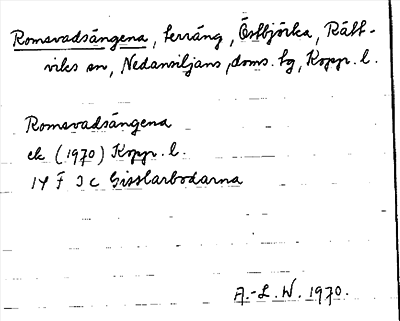 Romsvadsängena, terräng, Östbjörka, Rätt-
viks sn, Nedansiljans doms. tg, Kopp. l.
Romsvadsängena
ek (1970) Kopp. l.
14 F 3 c Gisslarbodarna
A.-L. W. 1970.